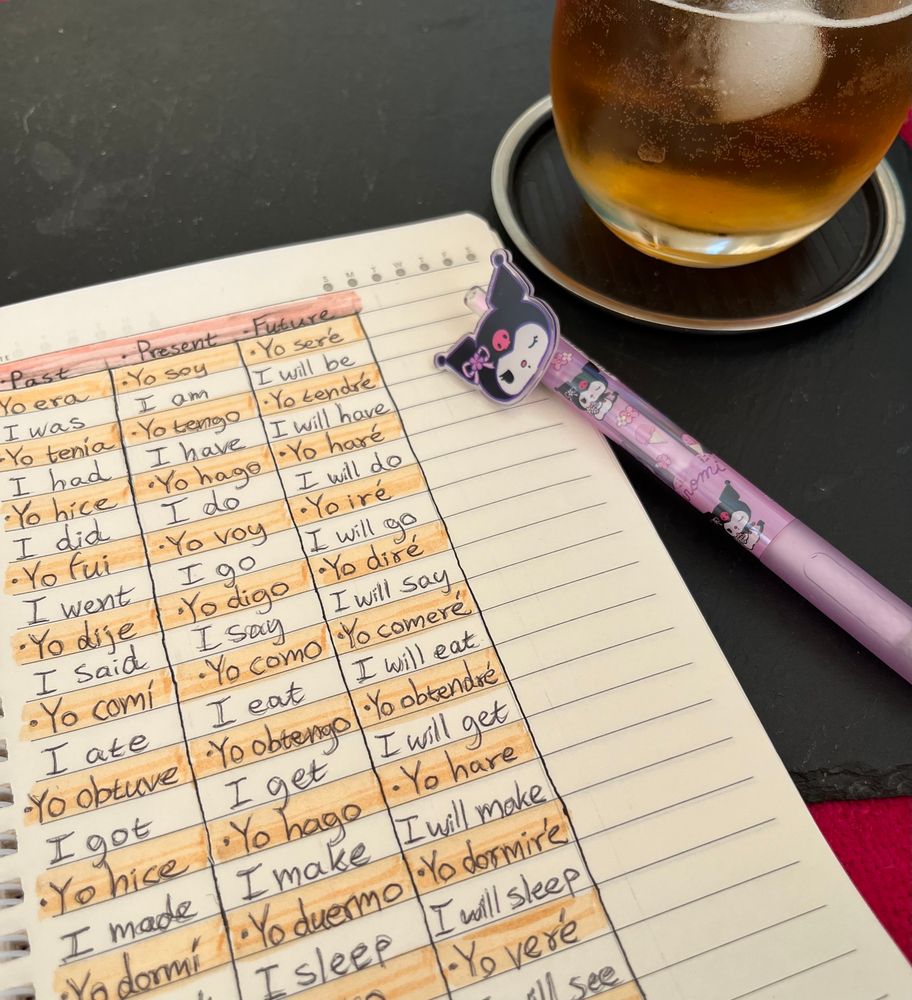 S M T W T F S
·Past ·Present ·Future
Yo era ·Yo soy ·Yo seré
I was I am I will be
·Yo tenía ·Yo tengo ·Yo tendré
I had I have I will have
·Yo hice ·Yo hago ·Yo haré
I did I do I will do
·Yo fui ·Yo voy ·Yo iré
I went I go I will go
·Yo dije ·Yo digo ·Yo diré
I said I say I will say
·Yo comí ·Yo como ·Yo comeré
I ate I eat I will eat
·Yo obtuve ·Yo obtengo ·Yo obtendré
I got I get I will get
·Yo hice ·Yo hago ·Yo hare
I made I make I will make
·Yo dormí ·Yo duermo ·Yo dormiré
I sleep I will sleep
·Yo veré
will see